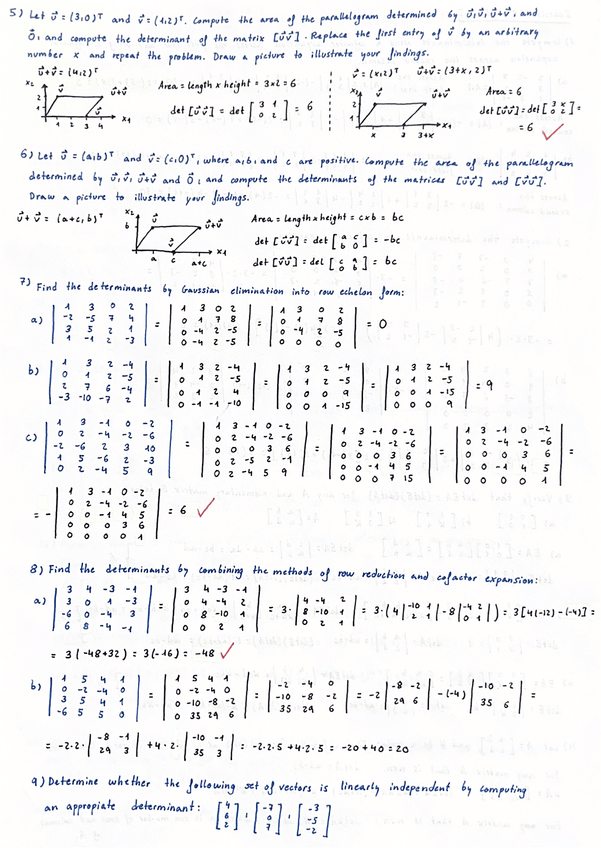 5) Let u⃗ = (3,0)ᵀ and v⃗ = (1,2)ᵀ. Compute the area of the parallelogram determined by u⃗, v⃗, u⃗+v⃗, and
0⃗, and compute the determinant of the matrix [u⃗ v⃗]. Replace the first entry of v⃗ by an arbitrary
number x and repeat the problem. Draw a picture to illustrate your findings.
u⃗+v⃗ = (4,2)ᵀ
Area = length x height = 3x2 = 6
det [u⃗ v⃗] = det [3 1; 0 2] = 6
x₂ 2 1 v⃗ u⃗+v⃗ u⃗ 1 2 3 4 x₁
v⃗ = (x,2)ᵀ u⃗+v⃗ = (3+x, 2)ᵀ
Area = 6
det [u⃗ v⃗] = det [3 x; 0 2] =
= 6
x₂ 2 1 u⃗+v⃗ x 3 3+x x₁
6) Let u⃗ = (a,b)ᵀ and v⃗ = (c,0)ᵀ, where a, b, and c are positive. Compute the area of the parallelogram
determined by u⃗, v⃗, u⃗+v⃗ and 0⃗, and compute the determinants of the matrices [u⃗ v⃗] and [v⃗ u⃗].
Draw a picture to illustrate your findings.
u⃗ + v⃗ = (a+c, b)ᵀ
x₂ b u⃗ u⃗+v⃗ v⃗ a c a+c x₁
Area = length x height = c x b = bc
det [u⃗ v⃗] = det [a c; b 0] = -bc
det [v⃗ u⃗] = det [c a; 0 b] = bc
7) Find the determinants by Gaussian elimination into row echelon form:
a) |1 3 0 2; -2 -5 7 4; 3 5 2 1; 1 -1 2 -3| = |1 3 0 2; 0 1 7 8; 0 -4 2 -5; 0 -4 2 -5| = |1 3 0 2; 0 1 7 8; 0 -4 2 -5; 0 0 0 0| = 0
b) |1 3 2 -4; 0 1 2 -5; 2 7 6 -4; -3 -10 -7 2| = |1 3 2 -4; 0 1 2 -5; 0 1 2 4; 0 -1 -1 -10| = |1 3 2 -4; 0 1 2 -5; 0 0 0 9; 0 0 1 -15| = |1 3 2 -4; 0 1 2 -5; 0 0 1 -15; 0 0 0 9| = 9
c) |1 3 -1 0 -2; 0 2 -4 -2 -6; -2 -6 2 3 10; 1 5 -6 2 -3; 0 2 -4 5 9| = |1 3 -1 0 -2; 0 2 -4 -2 -6; 0 0 0 3 6; 0 2 -5 2 -1; 0 2 -4 5 9| = |1 3 -1 0 -2; 0 2 -4 -2 -6; 0 0 0 3 6; 0 0 -1 4 5; 0 0 0 7 15| = |1 3 -1 0 -2; 0 2 -4 -2 -6; 0 0 0 3 6; 0 0 -1 4 5; 0 0 0 0 1| =
= - |1 3 -1 0 -2; 0 2 -4 -2 -6; 0 0 -1 4 5; 0 0 0 3 6; 0 0 0 0 1| = 6
8) Find the determinants by combining the methods of row reduction and cofactor expansion:
a) |3 4 -3 -1; 3 0 1 -3; -6 0 -4 3; 6 8 -4 -1| = |3 4 -3 -1; 0 4 -4 2; 0 8 -10 1; 0 0 2 1| = 3· |4 -4 2; 8 -10 1; 0 2 1| = 3·(4 |-10 1; 2 1| -8 |-4 2; 0 1|) = 3[4(-12) -(-4)] =
= 3(-48+32) = 3(-16) = -48
b) |1 5 4 1; 0 -2 -4 0; 3 5 4 1; -6 5 5 0| = |1 5 4 1; 0 -2 -4 0; 0 -10 -8 -2; 0 35 29 6| = |-2 -4 0; -10 -8 -2; 35 29 6| = -2 |-8 -2; 29 6| -(-4) |-10 -2; 35 6| =
= -2·2· |-8 -1; 29 3| + 4·2· |-10 -1; 35 3| = -2·2·5 + 4·2·5 = -20+40 = 20
9) Determine whether the following set of vectors is linearly independent by computing
an appropiate determinant: [4; 6; 2], [-7; 0; 7], [-3; -5; -2]